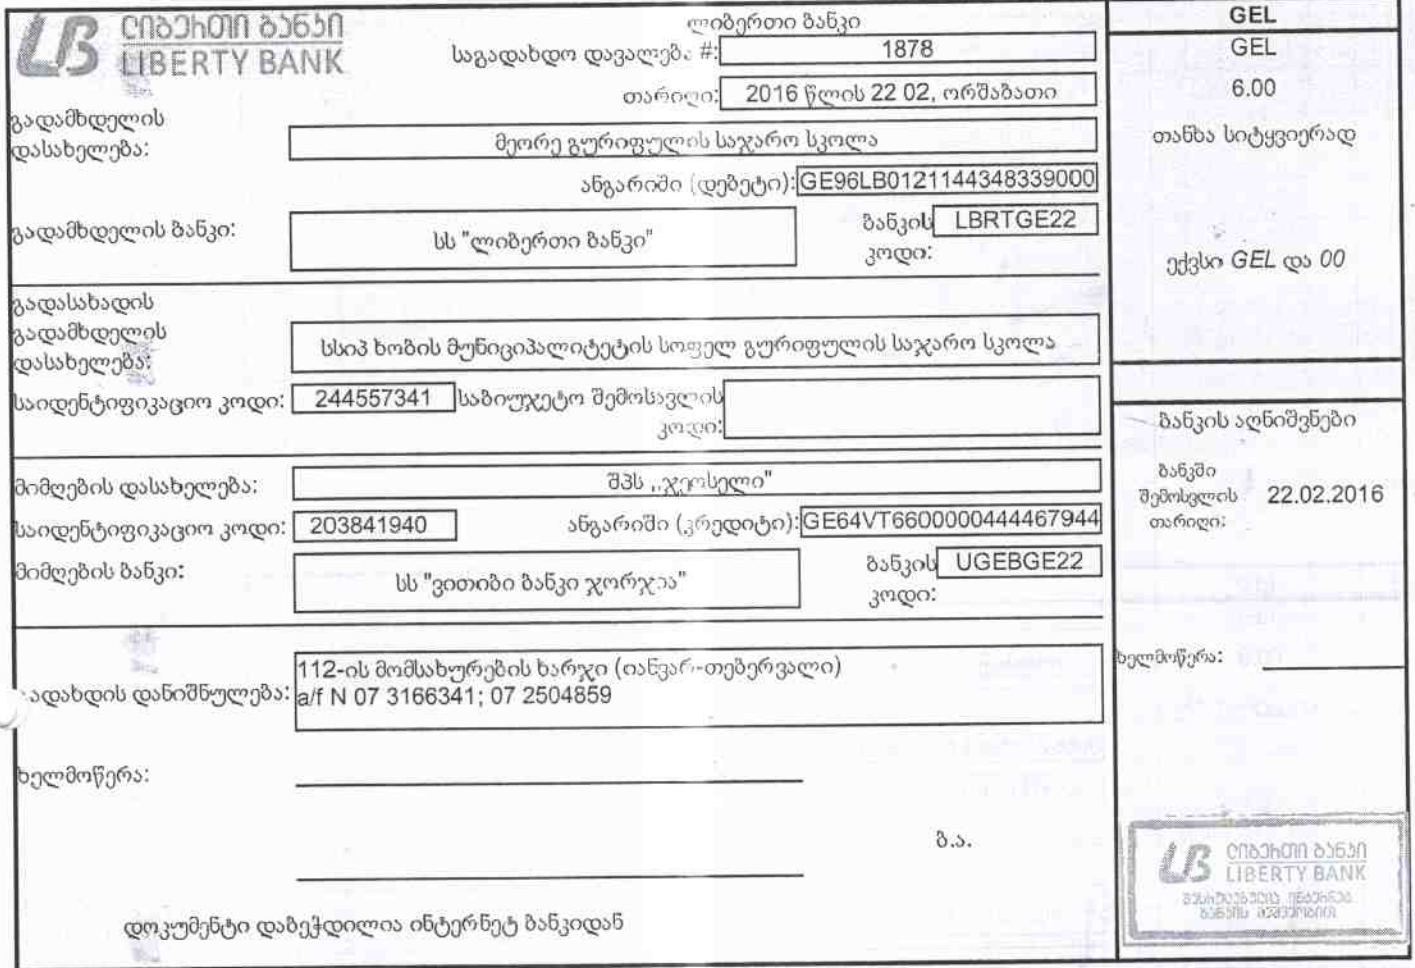 ლიბერთი ბანკი
LIBERTY BANK
ლიბერთი ბანკი
საგადახდო დავალება #: 1878
თარიღი: 2016 წლის 22 02, ორშაბათი
გადამხდელის
დასახელება:
მეორე გურიფულის საჯარო სკოლა
ანგარიში (დებეტი): GE96LB0121144348339000
გადამხდელის ბანკი:
სს "ლიბერთი ბანკი"
ბანკის
კოდი:
LBRTGE22
გადასახადის
გადამხდელის
დასახელება:
სსიპ ხობის მუნიციპალიტეტის სოფელ გურიფულის საჯარო სკოლა
საიდენტიფიკაციო კოდი: 244557341
საბიუჯეტო შემოსავლის
კოდი:
მიმღების დასახელება: შპს ,,ჯეოსელი"
საიდენტიფიკაციო კოდი: 203841940
ანგარიში (კრედიტი): GE64VT6600000444467944
მიმღების ბანკი:
სს "ვითიბი ბანკი ჯორჯია"
ბანკის
კოდი:
UGEBGE22
გადახდის დანიშნულება:
112-ის მომსახურების ხარჯი (იანვარ-თებერვალი)
a/f N 07 3166341; 07 2504859
ხელმოწერა:
ბ.ა.
დოკუმენტი დაბეჭდილია ინტერნეტ ბანკიდან
GEL
GEL
6.00
თანხა სიტყვიერად
ექვსი GEL და 00
ბანკის აღნიშვნები
ბანკში
შემოსვლის
თარიღი:
22.02.2016
ხელმოწერა:
ლიბერთი ბანკი
LIBERTY BANK